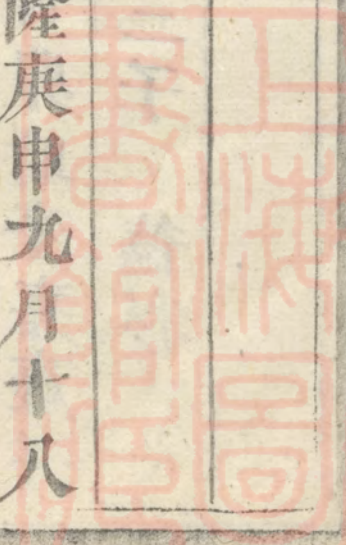 隆庚申九月十八
上海圖
書館藏